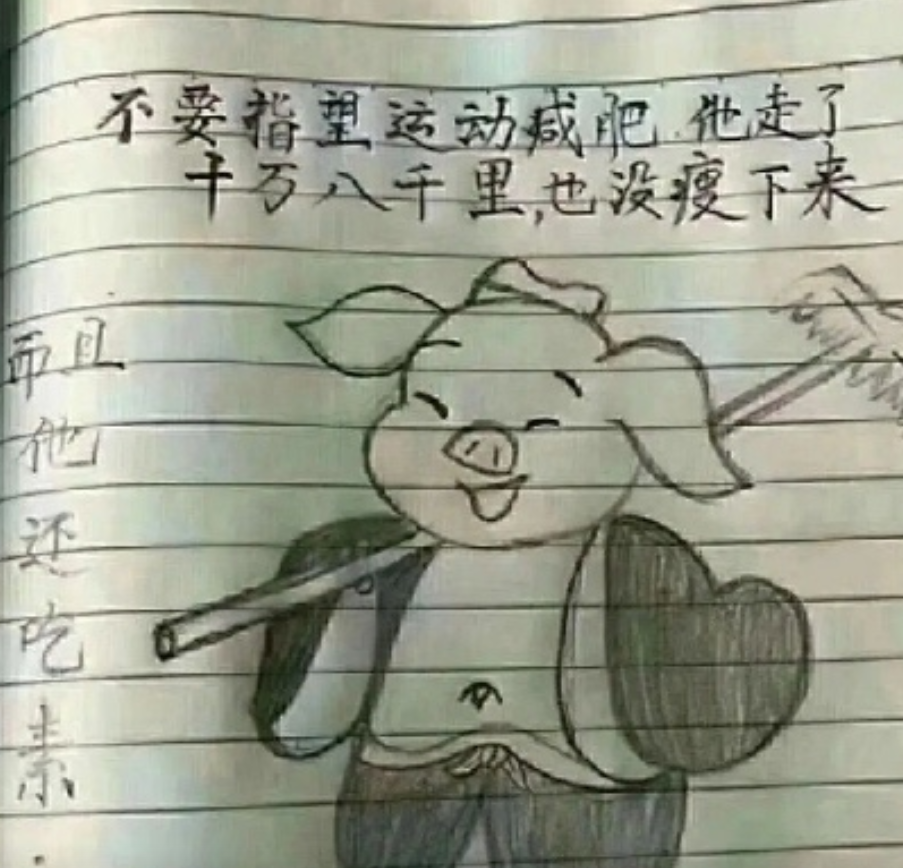 不要指望运动减肥.他走了
十万八千里,也没瘦下来
而且
他
还
吃
素
.